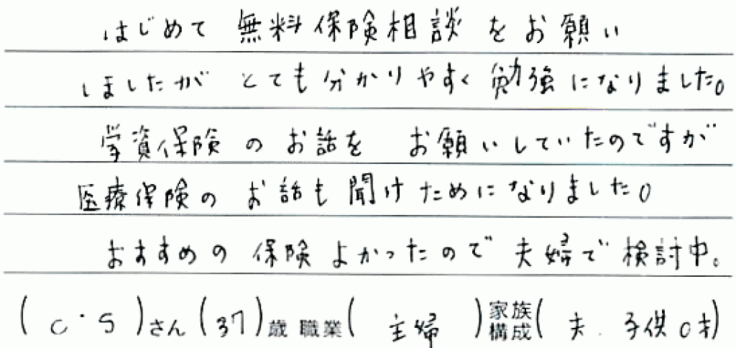 はじめて 無料保険相談 をお願い
しましたが とても分かりやすく 勉強になりました。
学資保険 の お話を お願いしていたのですが
医療保険の お話も 聞けためになりました。
おすすめの 保険 よかったので 夫婦で 検討中。
( C・S )さん (37)歳 職業( 主婦 )家族構成( 夫. 子供 0才)